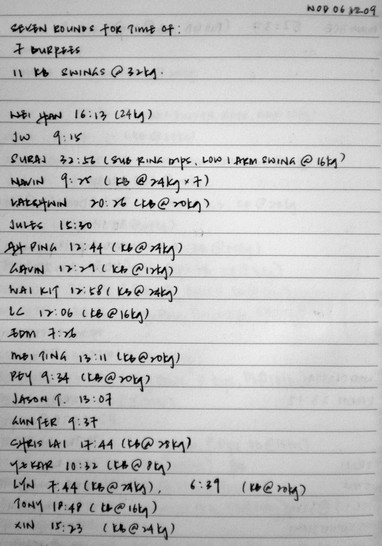 WOD 06.12.09
SEVEN ROUNDS FOR TIME OF:
7 BURPEES
11 KB SWINGS @ 32kg.
WEI HAN 16:13 (24kg)
JW 9:15
SURAJ 32:56 (SUB RING DIPS, LOW 1 ARM SWING @ 16kg)
NAVIN 9:25 (KB @ 24kg x 7)
LAKSHWIN 20:26 (KB @ 20kg)
JULES 15:30
AH PING 12:44 (KB @ 24kg)
GAVIN 12:29 (KB @ 12kg)
WAI KIT 12:58 (KB @ 24kg)
LC 12:06 (KB @ 16kg)
EDM 7:26
MEI TING 13:11 (KB @ 20kg)
PEY 9:34 (KB @ 20kg)
JASON T. 13:07
GUNTER 9:37
CHRIS LAI 7:44 (KB @ 28kg)
YEKAR 10:32 (KB @ 8kg)
LYN 7:44 (KB @ 24kg), 6:39 (KB @ 20kg)
TONY 18:48 (KB @ 16kg)
XIN 15:23 (KB @ 24kg)